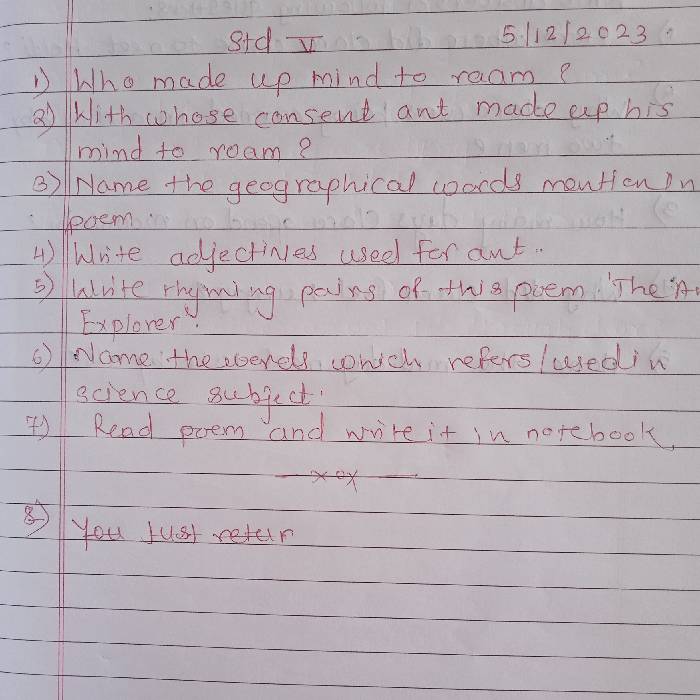 Std V 5/12/2023.
1) Who made up mind to roam ?
2) With whose consent ant made up his
mind to roam ?
3) Name the geographical words mention in
poem.
4) Write adjectives used for ant..
5) Write rhyming pairs of this poem 'The A
Explorer'.
6) Name the words which refers/used in
science subject.
7) Read poem and write it in notebook.
x o x
8) You just retur